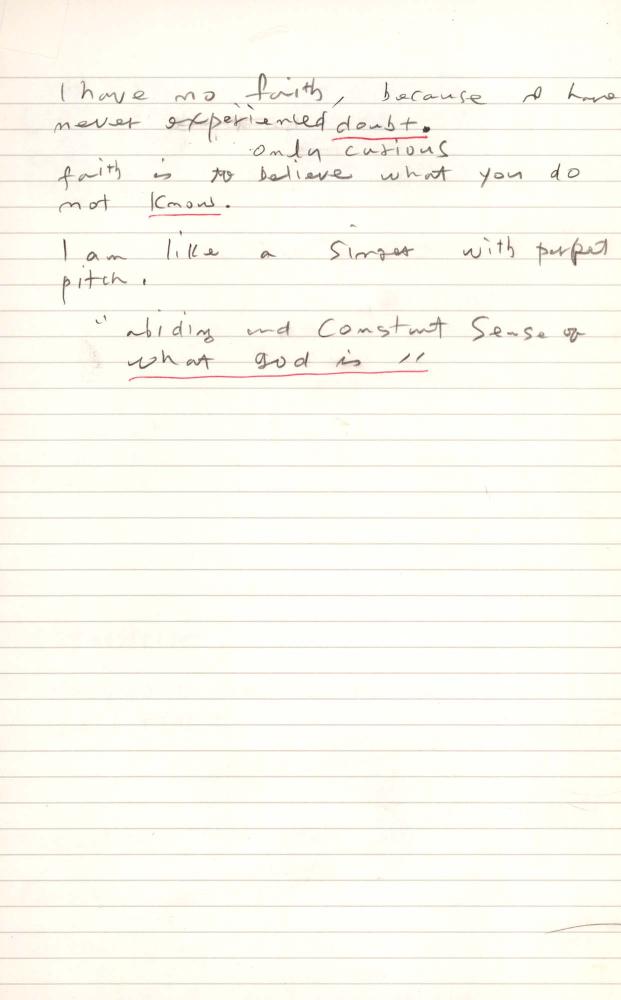 I have no faith, because I have
never experienced doubt.
only curious
faith is to believe what you do
not know.
I am like a singer with perfect
pitch.
"abiding and constant sense of
what god is"